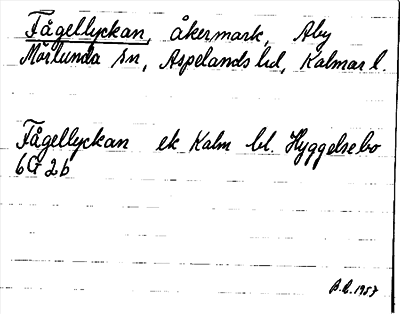 Fågellyckan, åkermark, Aby
Mörlunda sn, Aspelands hd, Kalmar l.
Fågellyckan ek Kalm bl. Hyggelsebo
6G 2b
B.L. 1957